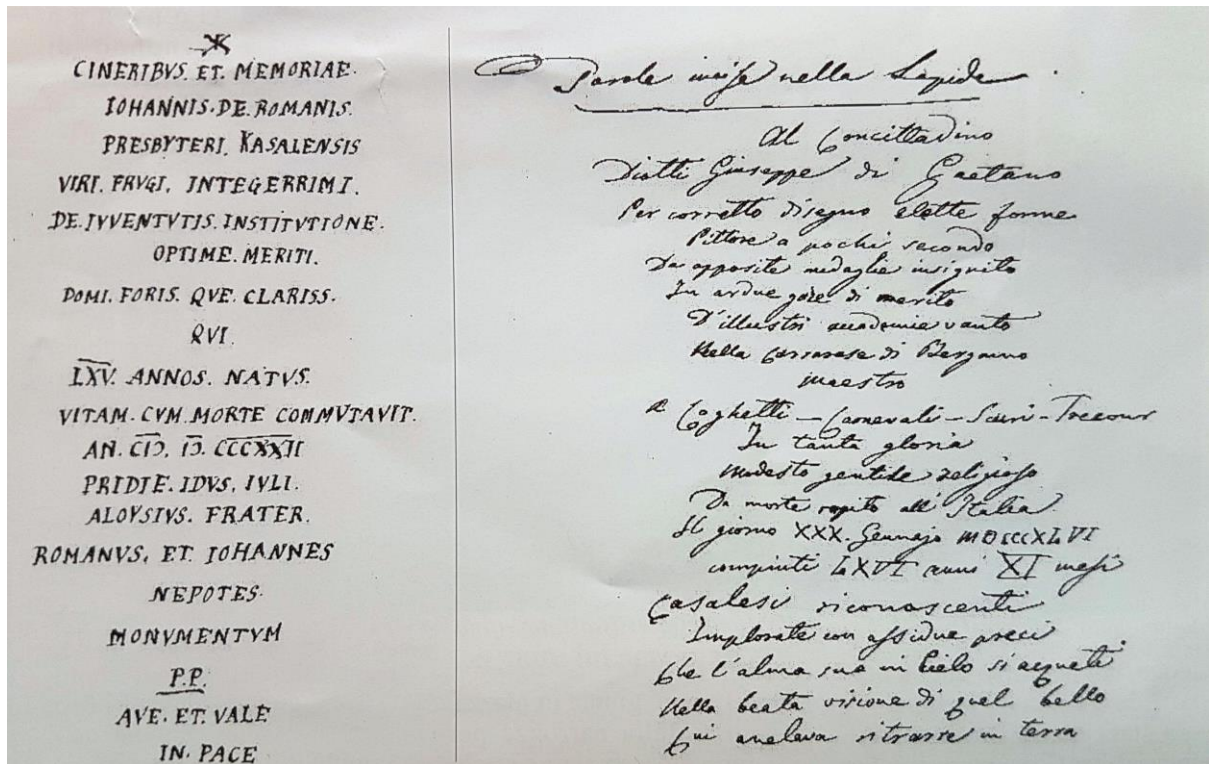 CINERIBVS. ET. MEMORIAE.
IOHANNIS. DE. ROMANIS.
PRESBYTERI. KASALENSIS
VIRI. FRVGI. INTEGERRIMI.
DE. IVVENTVTIS. INSTITVTIONE.
OPTIME. MERITI.
DOMI. FORIS. QVE. CLARISS.
QVI
LXV. ANNOS. NATVS.
VITAM. CVM. MORTE COMMVTAVIT.
AN. CIↃ. IↃ. CCCXXII
PRIDIE. IDVS. IVLI.
ALOYSIVS. FRATER.
ROMANVS. ET. IOHANNES
NEPOTES.
MONVMENTVM
P.P.
AVE. ET. VALE
IN. PACE
Parole incise nella Lapide
Al Concittadino
Diotti Giuseppe di Gaetano
Per corretto disegno elette forme
Pittore a pochi secondo
Da apposite medaglie insignito
In ardue gare di merito
D'illustri accademie vanto
Nella Carrarese di Bergamo
maestro
a Coghetti - Carnevali - Scuri - Trecour
In tanta gloria
modesto gentile religioso
Da morte rapito all'Italia
Il giorno XXX. Gennajo MDCCCXLVI
compiuti LXVI anni XI mesi
Casalesi riconoscenti
Implorate con assidue preci
Che l'alma sua in Cielo si acqueti
Nella beata visione di quel bello
Cui anelava ritrarre in terra